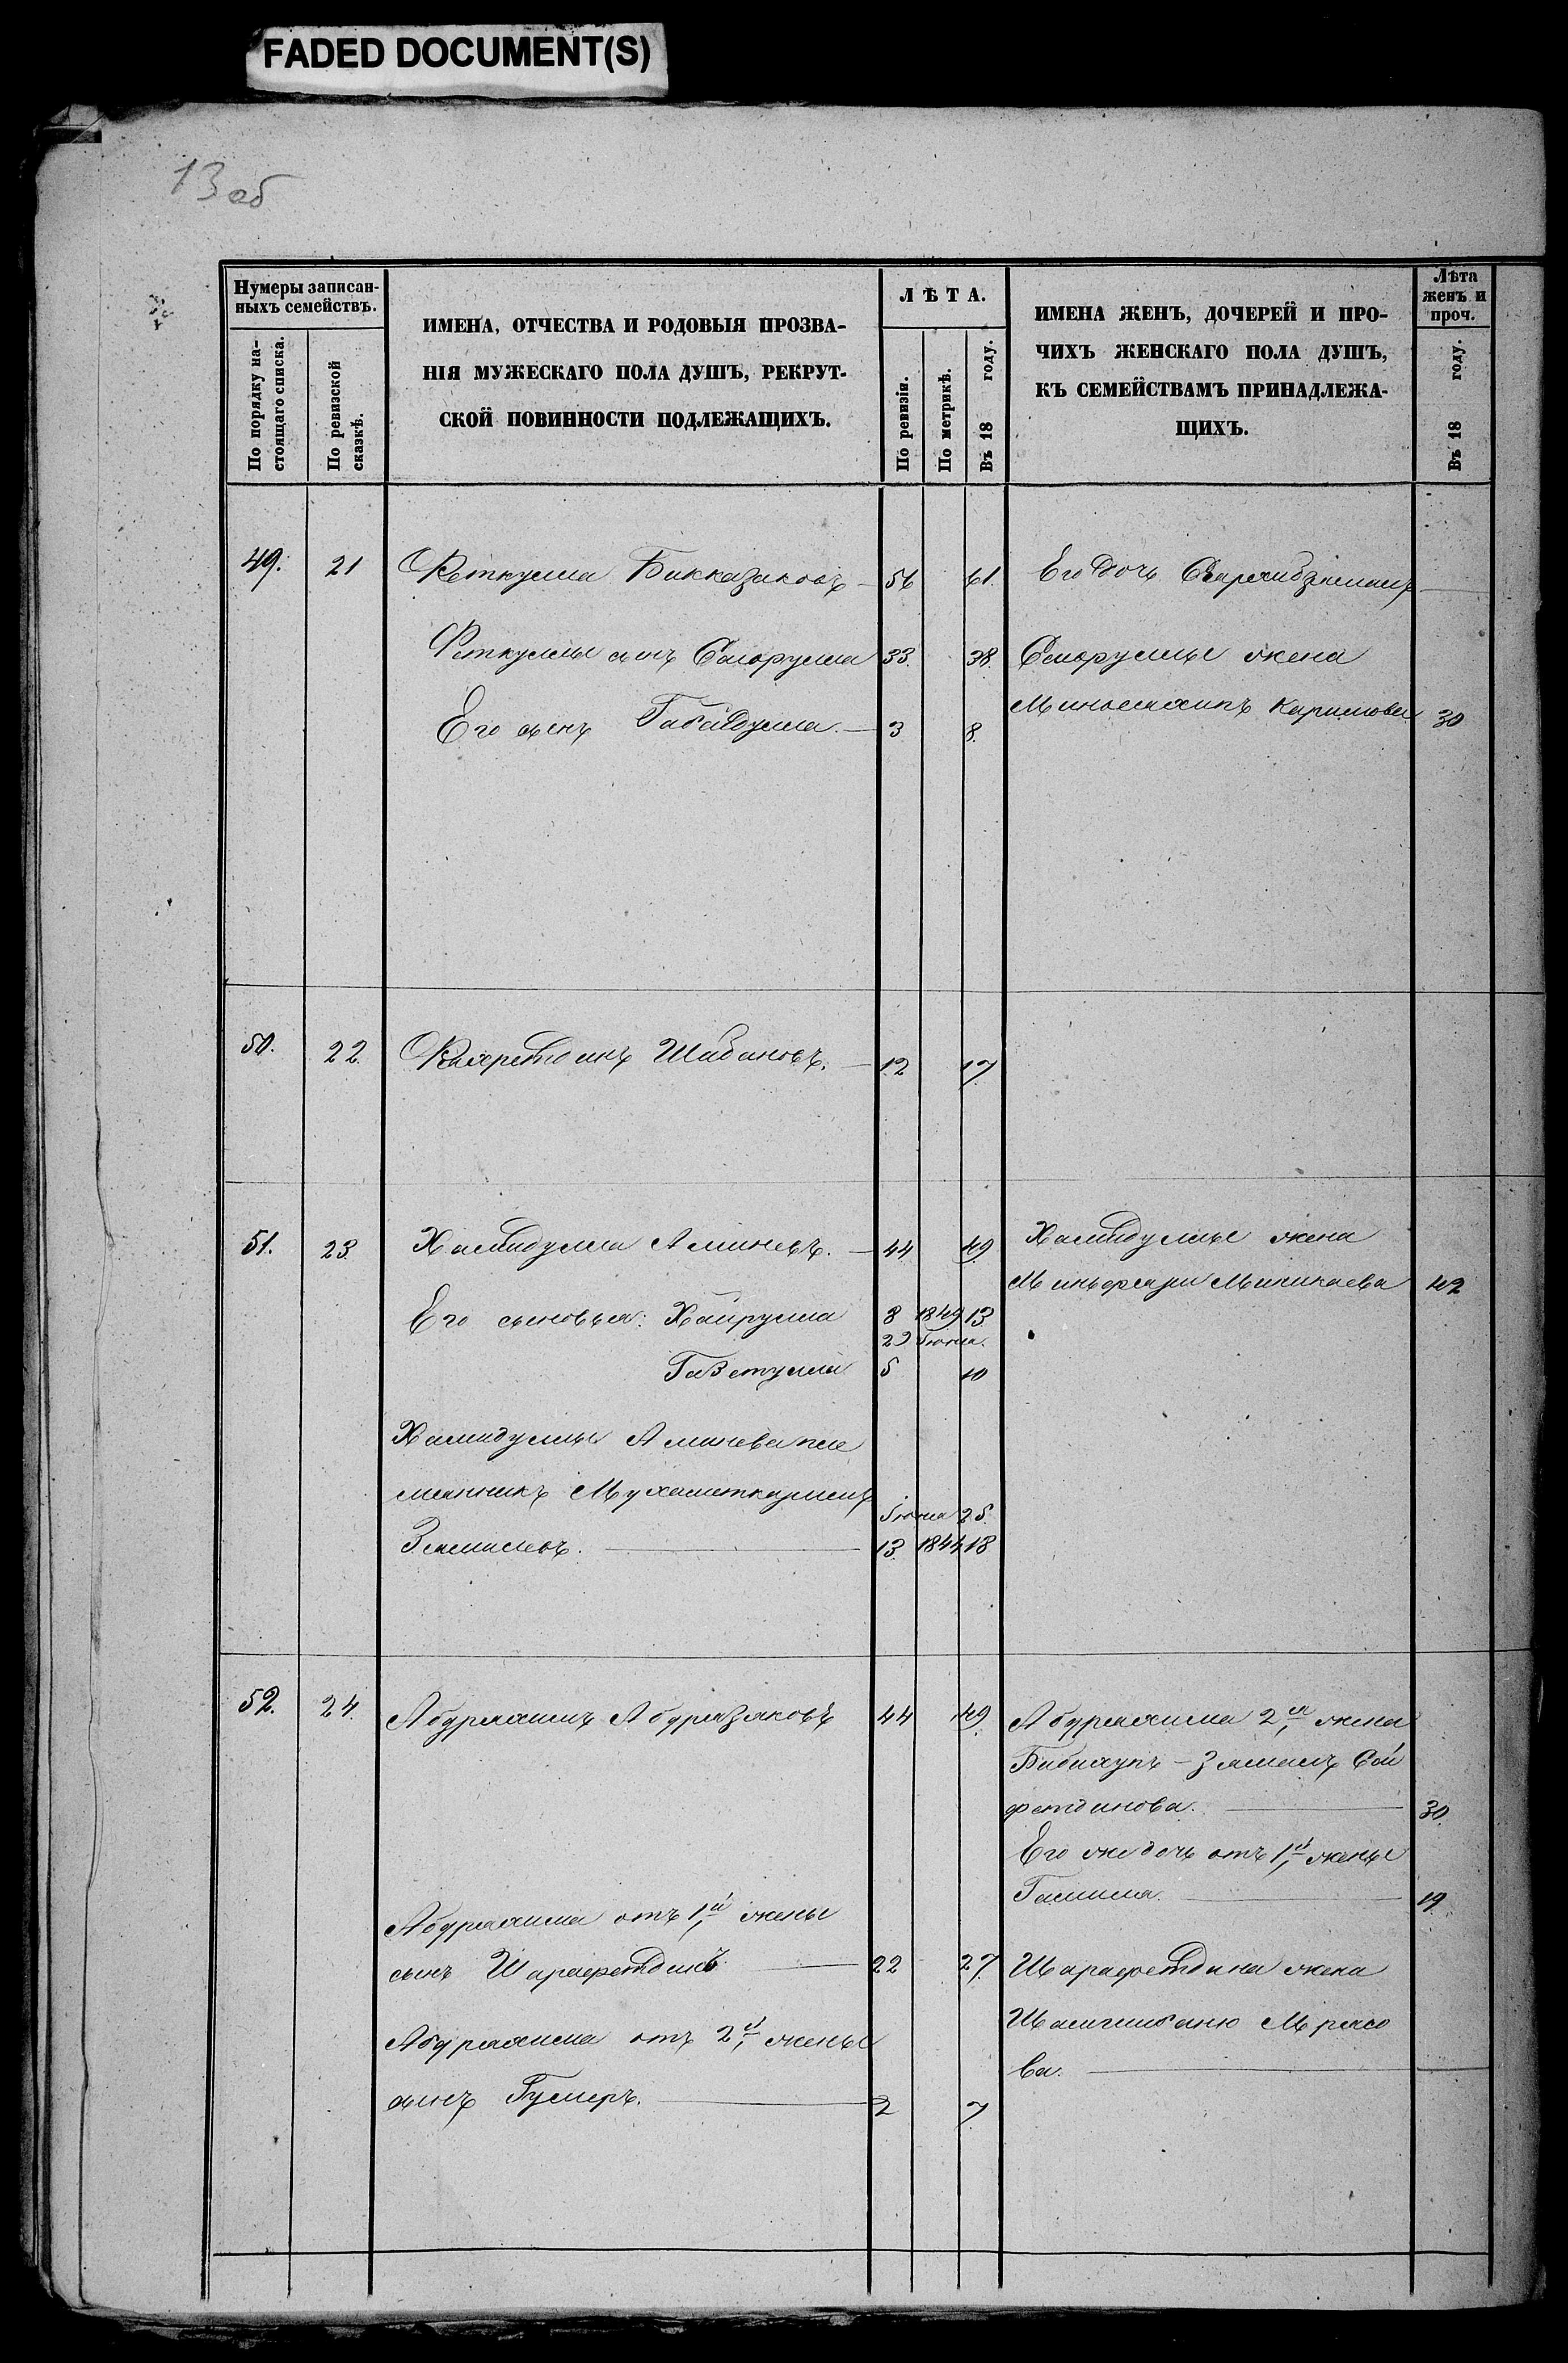 FADED DOCUMENT(S)
13 об
Нумеры записан-
ныхъ семействъ.
По порядку на-
стоящаго списка.
По ревизской
сказкѣ.
ИМЕНА, ОТЧЕСТВА И РОДОВЫЯ ПРОЗВА-
НІЯ МУЖЕСКАГО ПОЛА ДУШЪ, РЕКРУТ-
СКОЙ ПОВИННОСТИ ПОДЛЕЖАЩИХЪ.
ЛѢТА.
По ревизіи.
По метрикѣ.
Въ 18 году.
ИМЕНА ЖЕНЪ, ДОЧЕРЕЙ И ПРО-
ЧИХЪ ЖЕНСКАГО ПОЛА ДУШЪ,
КЪ СЕМЕЙСТВАМЪ ПРИНАДЛЕЖА-
ЩИХЪ.
Лѣта
женъ и
проч.
Въ 18 году.
49. 21 Феткулла Бикказаковъ 56 61. Его дочь
Феткуллы сынъ 33. 38. жена
Его сынъ Габайдулла. 3 8. Каримова 30
50. 22. Шабановъ. 12 17
51. 23 Хамидулла Аминевъ. 44 49. Хамидуллы жена
Миникаева 42
Его сыновья: Хайрулла 8 1849 13
29 Іюня.
5 10
Хамидуллы Аминева пле
мянникъ Мухаметкаримъ
Іюня 25.
13 1844 18
52. 24. Абдрахимъ Абдразяковъ 44 49. Абдрахима 2я жена
Сай
фетдинова. 30.
Его же дочь отъ 1й жены
Галима. 19
Абдрахима отъ 1й жены
сынъ Шарафетдинъ 22 27. Шарафетдина жена
Абдрахима отъ 2й жены
Мрясо
ва.
сынъ Гумеръ. 2 7.